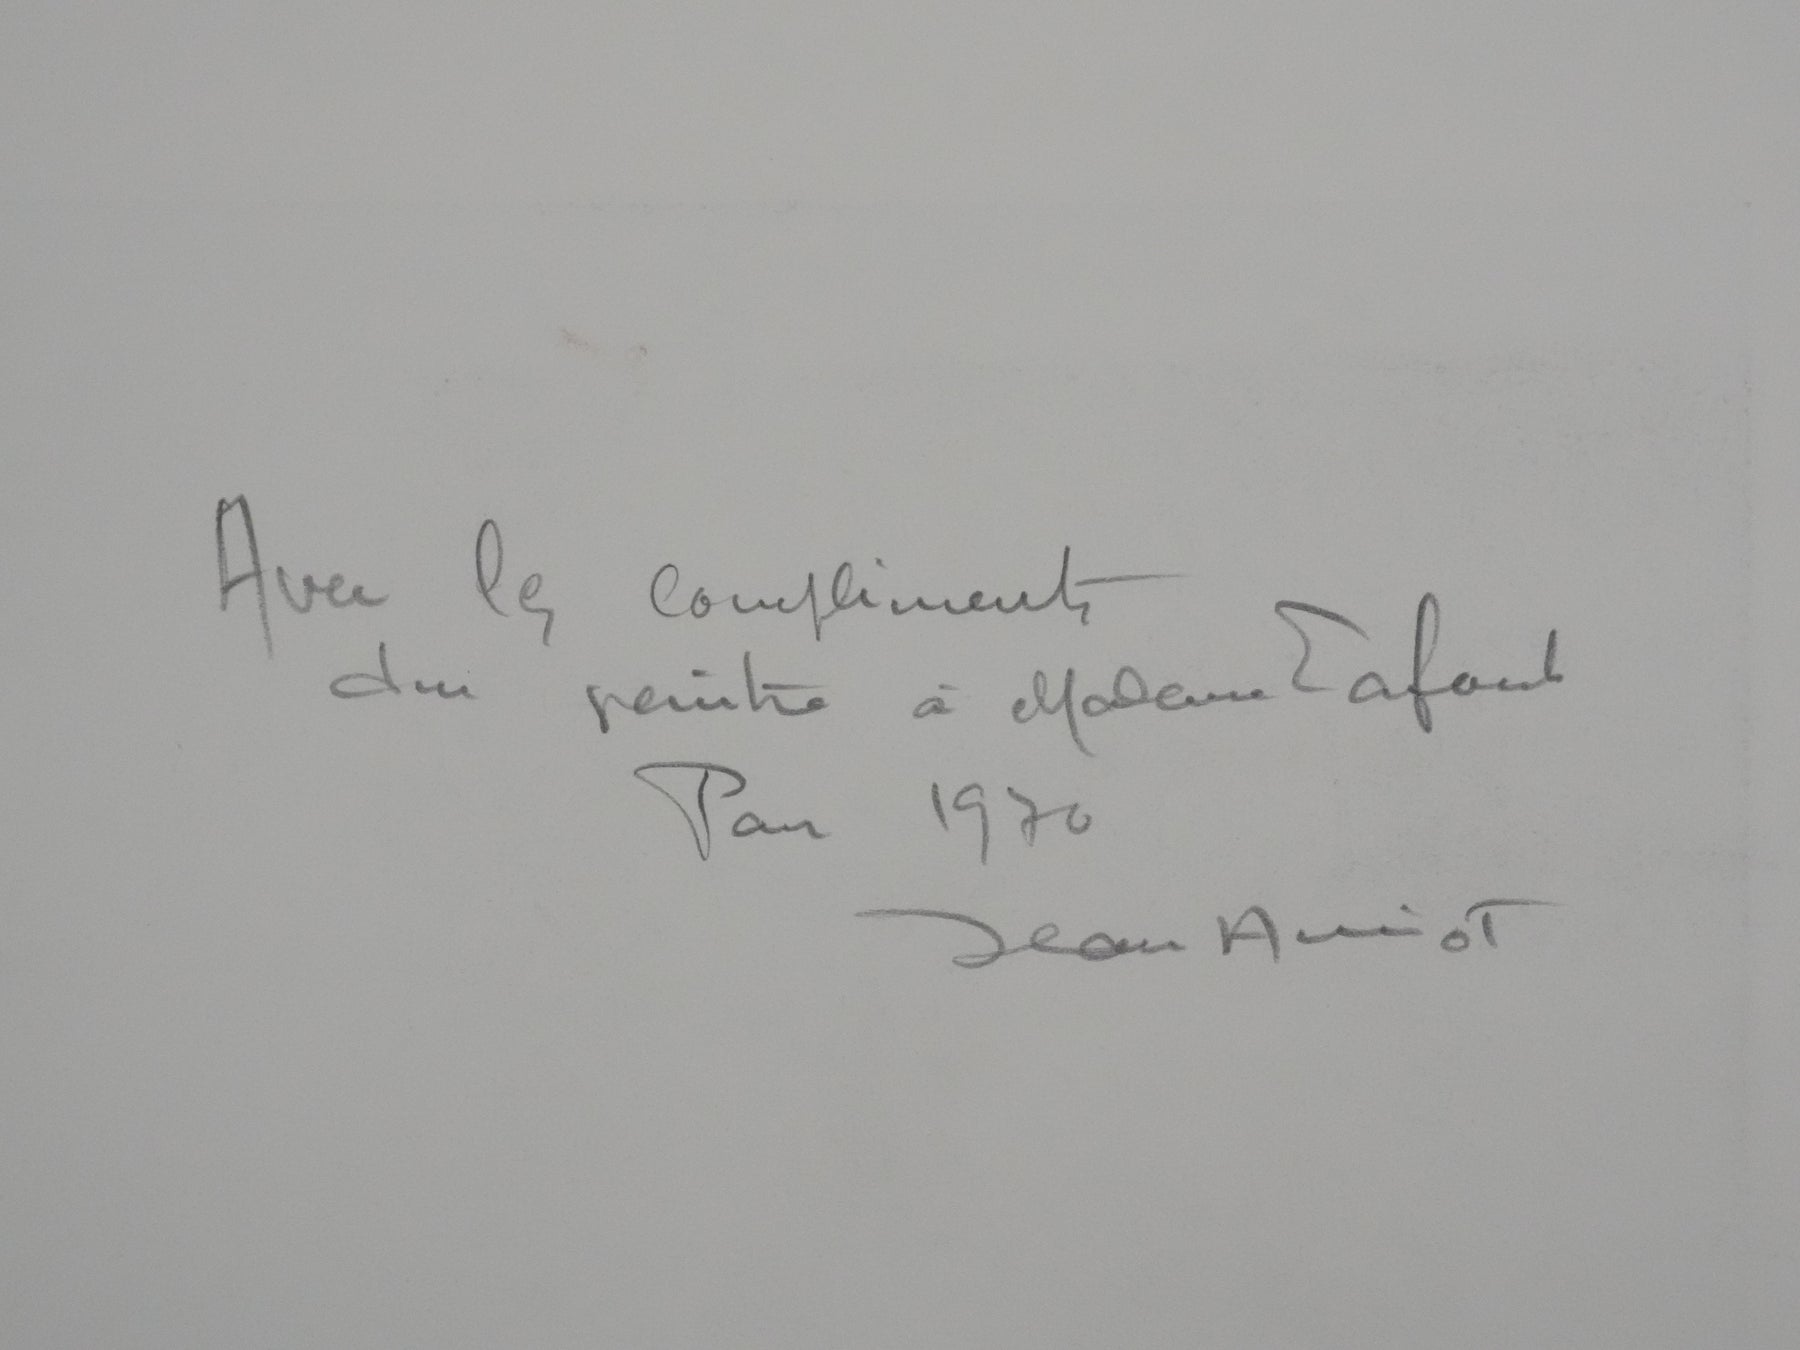 Avec les compliments
du peintre à Madame
Pau 1970
Jean Amiot